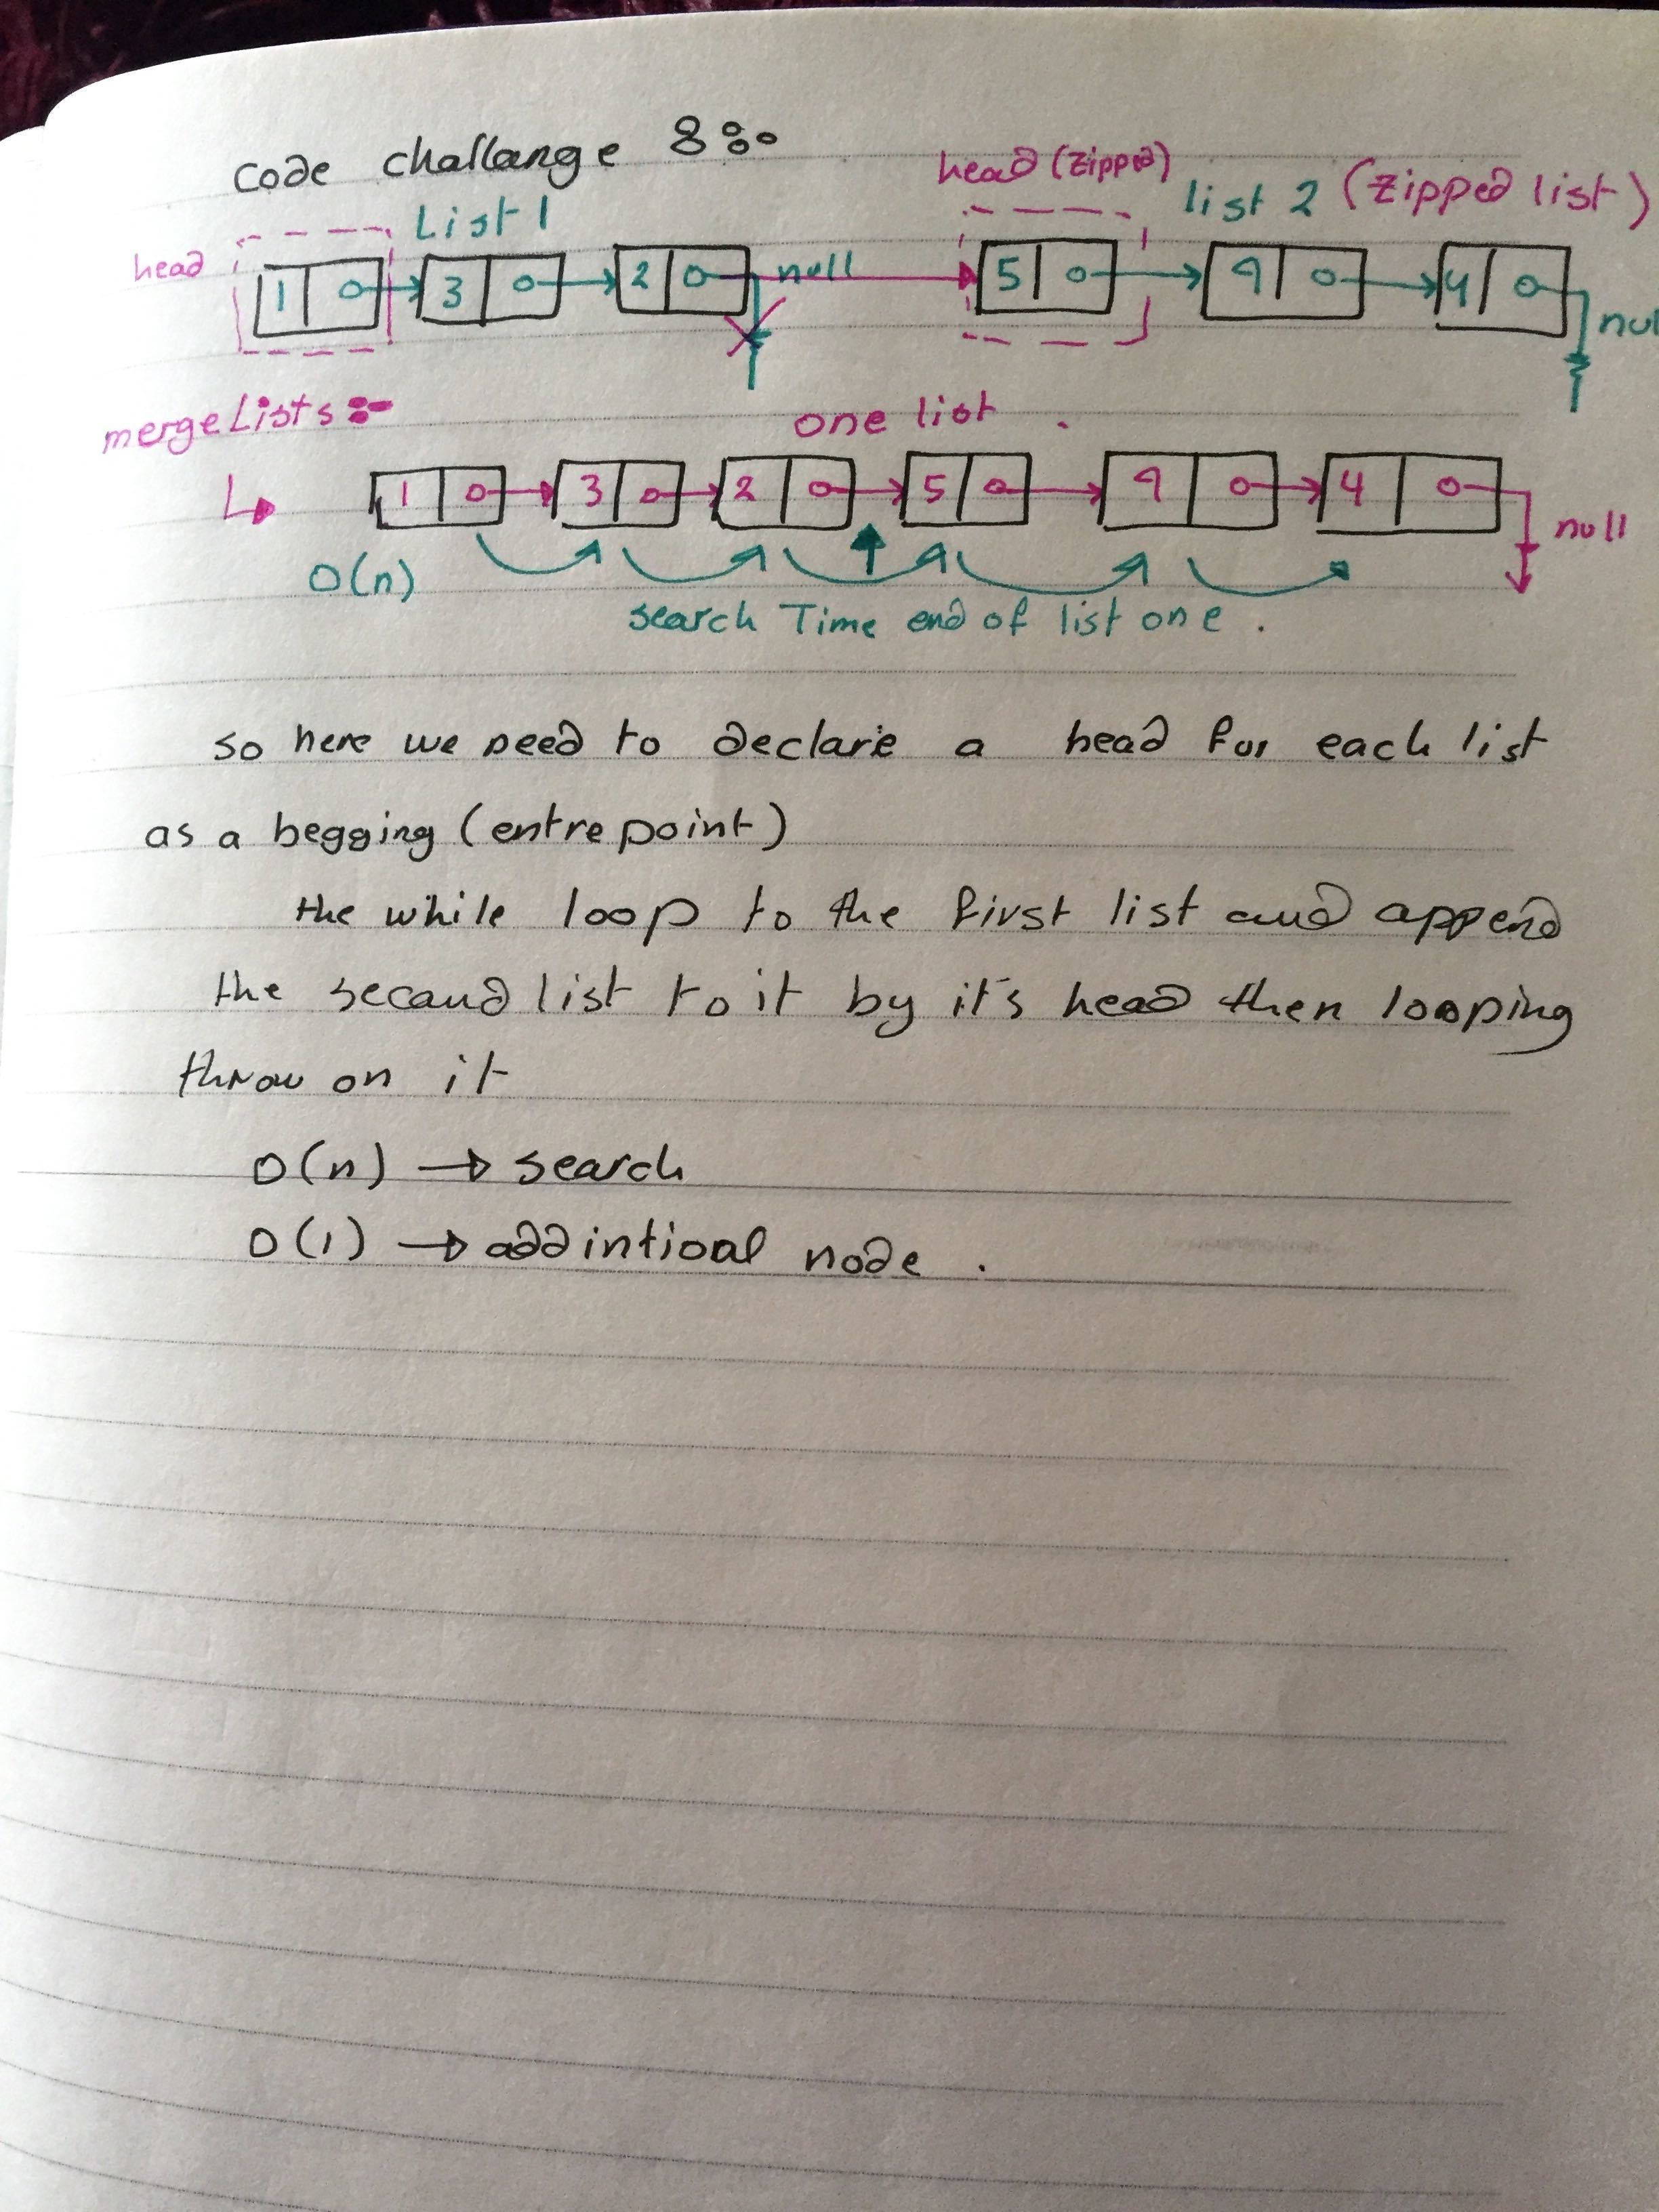 code challange 8:-
head (zipped)
List 1
list 2 (zipped list)
head
1 3 2 null 5 9 4 nul
mergeLists :-
one list .
1 3 2 5 9 4
null
O(n)
search Time end of list one .
so here we need to declare a head for each list
as a begging (entre point)
the while loop to the first list and append
the secand list to it by it's head then looping
throw on it
O(n) → search
O(1) → add intioal node .